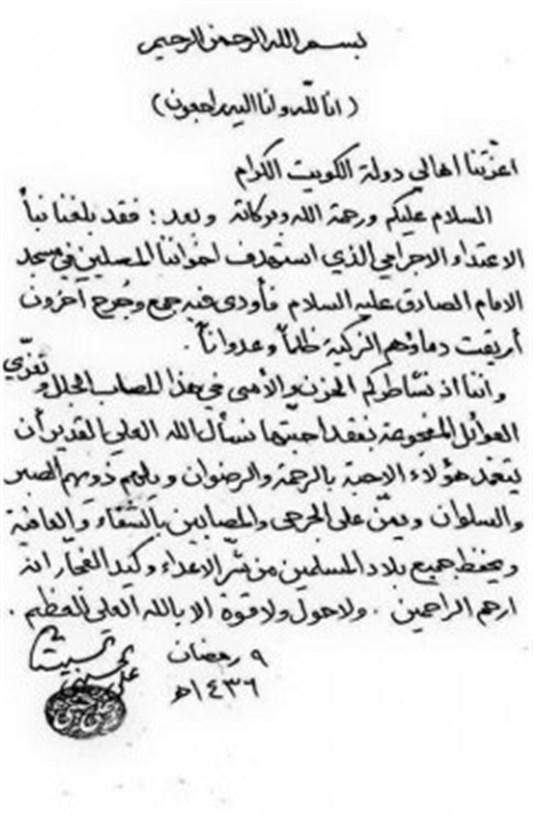 بسم الله الرحمن الرحيم
(انا لله وانا اليه راجعون)
اعزّتنا اهالي دولة الكويت الكرام
السلام عليكم ورحمة الله وبركاته وبعد: فقد بلغنا نبأ
الاعتداء الاجرامي الذي استهدف اخواننا المصلين في مسجد
الامام الصادق عليه السلام فأودى فيه جمع وجُرح آخرون
أريقت دماؤهم الزكية ظلماً وعدواناً.
واننا اذ نشاطركم الحزن والأسى في هذا المصاب الجلل ونعزّي
العوائل المفجوعة بفقد احبتها نسأل الله العلي القدير أن
يتغمد هؤلاء الاحبة بالرحمة والرضوان ويلهم ذويهم الصبر
والسلوان ويمنّ على الجرحى والمصابين بالشفاء والعافية
ويحفظ جميع بلاد المسلمين من شرّ الاعداء وكيد الفجّار انه
ارحم الراحمين. ولاحول ولا قوة الا بالله العلي العظيم.
٩ رمضان
١٤٣٦هـ
علي الحسيني السيستاني